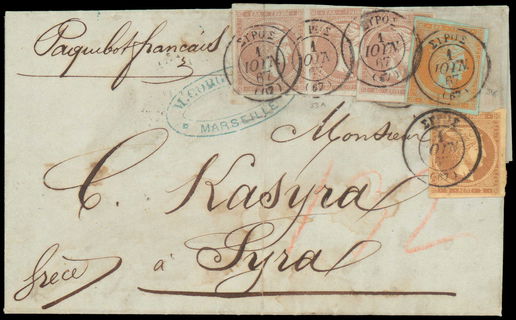 Paquibot français
ΣΥΡΟΣ
1
ΙΟΥΝ
67
(67)
ΣΥΡΟΣ
1
ΙΟΥΝ
67
(67)
ΣΥΡΟΣ
1
ΙΟΥΝ
67
(67)
ΣΥΡΟΣ
1
ΙΟΥΝ
67
(67)
MARSEILLE
Monsieur
C. Kasyra
à Syra
Grèce